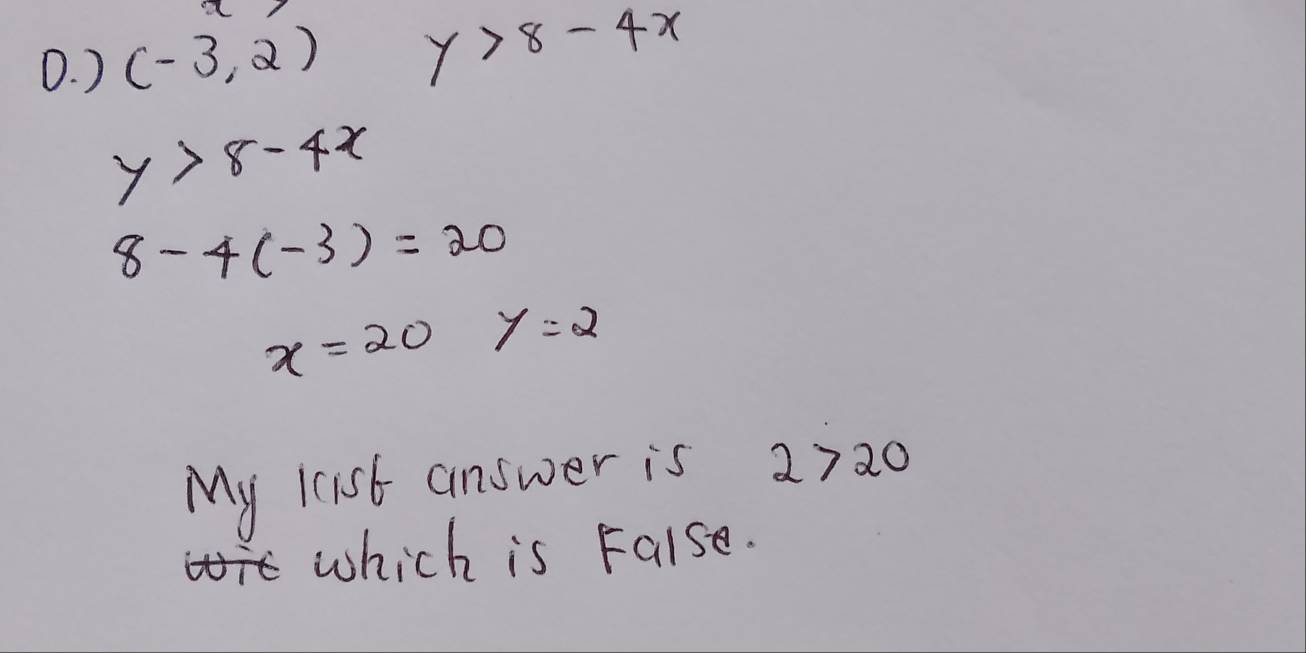 D.) (-3,2) y > 8 - 4x
y > 8 - 4x
8 - 4(-3) = 20
x = 20 y = 2
My last answer is 2 > 20
which is False.